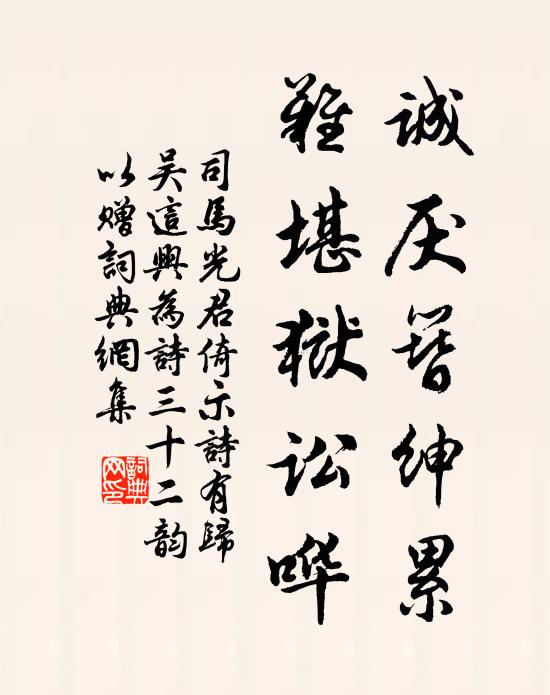 誠厌簪紳累
難堪獄讼哗
司馬光君倚示詩有歸
吴這興為詩三十二韵
以贈詞典網集
詞典
网印